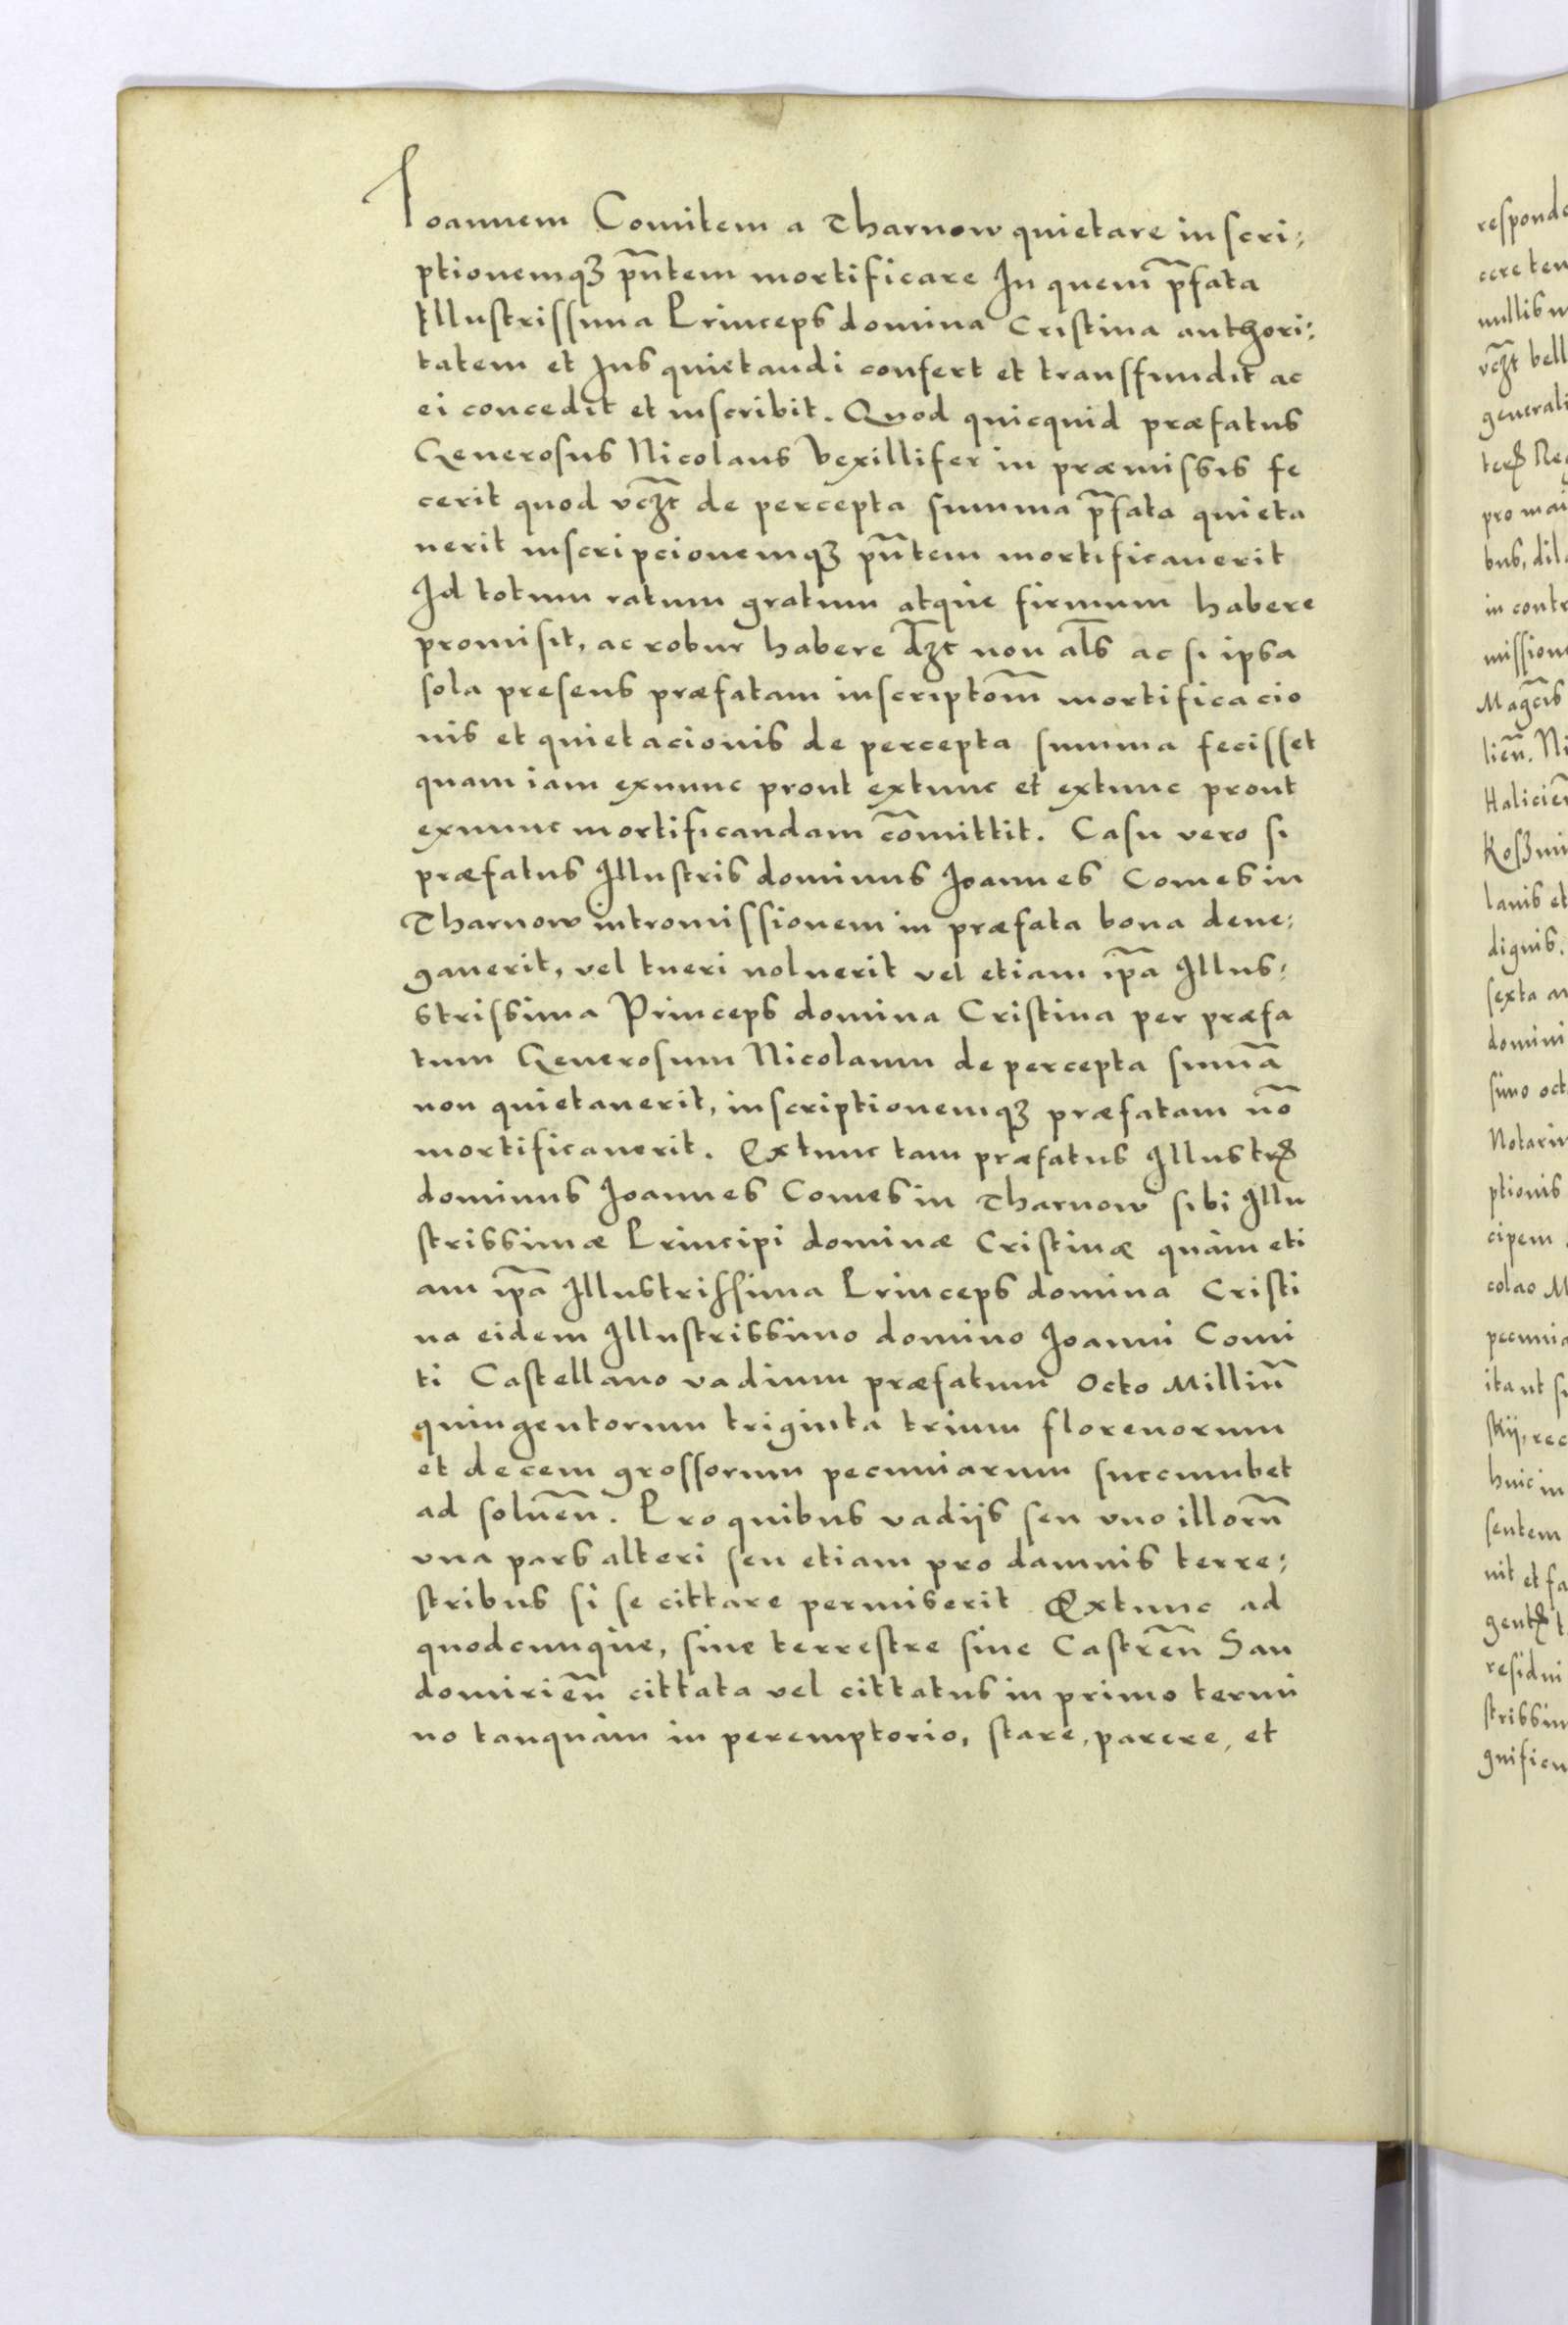 Ioannem Comitem a Tharnow quietare inscri:
ptionemqꝫ pñtem mortificare In quem p̄fata
Illustrissima Princeps domina Cristina authori:
tatem et Ius quietandi confert et transfundit ac
ei concedit et inscribit. Quod quicquid præfatus
Generosus Nicolaus Vexillifer in præmissis fe
cerit quod vcꝫt de percepta summa p̄fata quieta
uerit inscripcionemqꝫ pñtem mortificauerit
Id totum ratum gratum atque firmum habere
promisit, ac robur habere dꝫt non al̄s ac si ipsa
sola presens præfatam inscriptōm mortificacio
nis et quietacionis de percepta summa fecisset
quam iam exnunc prout extunc et extunc prout
exnunc mortificandam cōmittit. Casu vero si
præfatus Illustris dominus Ioannes Comes in
Tharnow intromissionem in præfata bona dene:
gauerit, vel tueri noluerit vel etiam ip̄a Illus:
strissima Princeps domina Cristina per præfa
tum Generosum Nicolaum de percepta sum̄a
non quietauerit, inscriptionemqꝫ præfatam nō
mortificauerit. Extunc tam præfatus Illustrꝭ
dominus Ioannes Comes in Tharnow sibi Illu
strissimæ Principi dominæ Cristinæ quàm eti
am ip̄a Illustrissima Princeps domina Cristi
na eidem Illustrissimo domino Ioanni Comi
ti Castellano vadium præfatum Octo Milliū
quingentorum triginta trium florenorum
et decem grossorum pecuniarum succumbet
ad soluen̄. Pro quibus vadijs seu vno illorū
vna pars alteri seu etiam pro damnis terre:
stribus si se cittare permiserit Extunc ad
quodcunque, siue terrestre siue Castren̄ San
domirien̄ cittata vel cittatus in primo termi
no tanquàm in peremptorio, stare, parere, et
responde
cere ten
nullis
vcꝫt bell
generali
terꝭ Reg
bus, dil
in contr
mission
Magc̄is
lien̄. Ni
Halicien̄
lanis et
dignis.
sexta
domini
simo oct
Notariu
ptionis
cipem
colao M
pecunia
ita ut
skij, rec
huic in
sentem
nit et fa
gentꝭ t
residui
strissim
gnificu